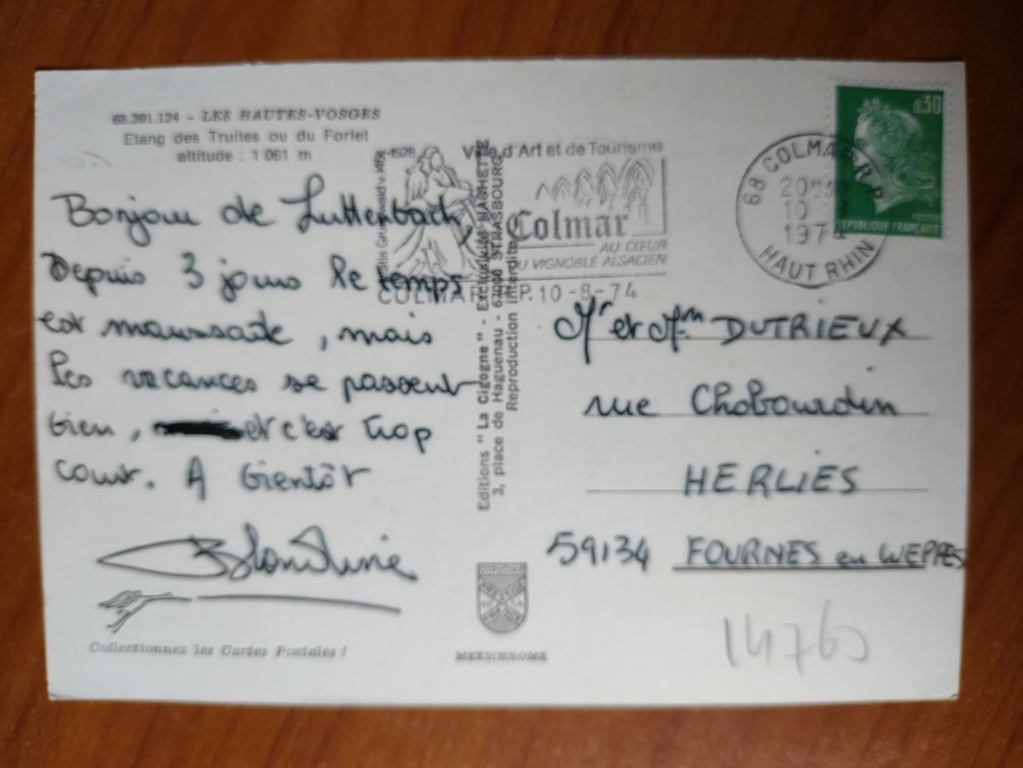 68.391.124 - LES HAUTES-VOSGES
Etang des Truites ou du Forlet
altitude : 1 061 m
Bonjour de Luttenbach,
Depuis 3 jours le temps
est maussade, mais
les vacances se passent
bien, et c'est trop
court. A bientôt
Blandine
Collectionnez les Cartes Postales !
Editions "La Cigogne" - Exclusivité HACHETTE
3, place de Haguenau - 67000 STRASBOURG
Reproduction interdite
MEXICHROME
Ville d'Art et de Tourisme
Colmar
AU CŒUR
DU VIGNOBLE ALSACIEN
COLMAR R.P. 10-8-74
68 COLMAR R.P.
10
197
HAUT RHIN
0,30
POSTES
REPUBLIQUE FRANÇAISE
Mr et Mm DUTRIEUX
rue Chobourdin
HERLIES
59134 FOURNES en WEPPES